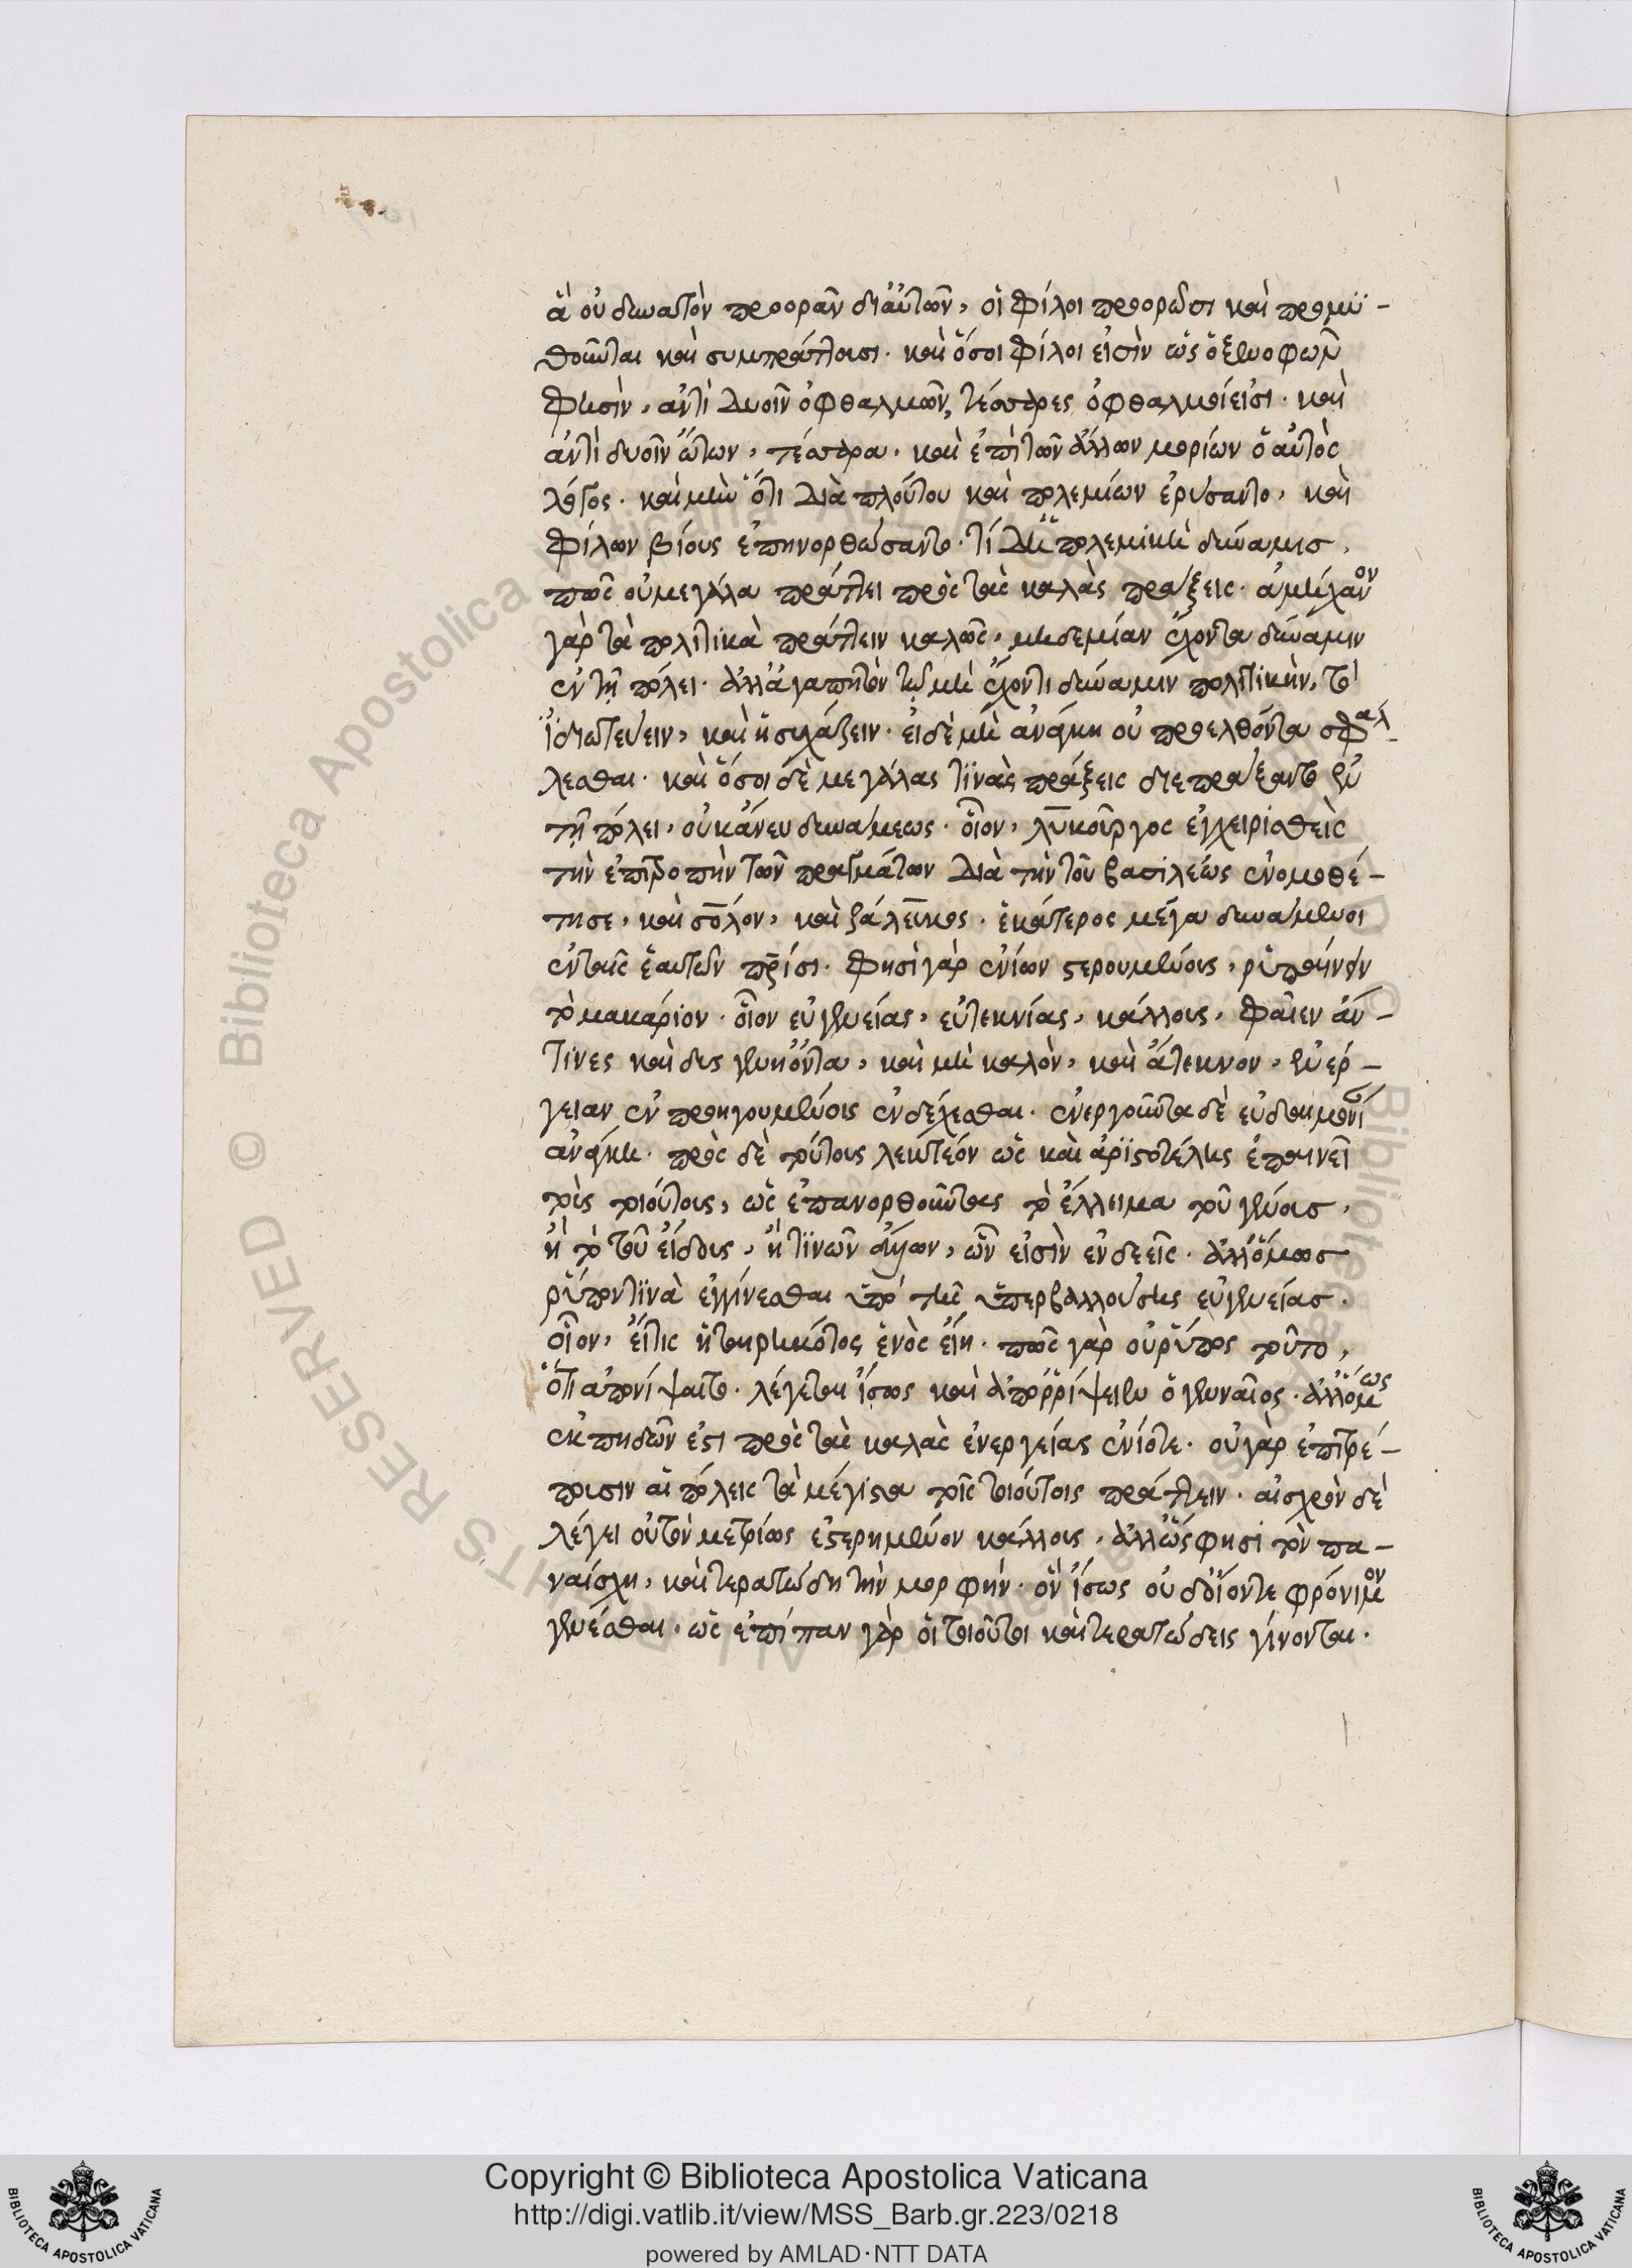 ἃ οὐ δυνατὸν προορᾶν δι' αὐτῶν, οἱ φίλοι προορῶσι καὶ προμη-
θοῦνται καὶ συμπράττουσι. καὶ ὅσοι φίλοι εἰσὶν ὡς ὁ ξενοφῶν
φησὶν, ἀντὶ δυοῖν ὀφθαλμῶν, τέσσαρες ὀφθαλμοί εἰσι. καὶ
ἀντὶ δυοῖν ὤτων, τέσσαρα. καὶ ἐπὶ τῶν ἄλλων μορίων ὁ αὐτὸς
λόγος. καὶ μὴν ὅτι διὰ πλούτου καὶ πολεμίων ἐρύσαντο, καὶ
φίλων βίους ἐπηνορθώσαντο. τί δὲ ἡ πολεμικὴ δύναμις,
πῶς οὐ μεγάλα πράττει πρὸς τὰς καλὰς πράξεις. ἀμήχανον
γὰρ τὰ πολιτικὰ πράττειν καλῶς, μηδεμίαν ἔχοντα δύναμιν
ἐν τῇ πόλει. ἀλλ' ἀγαπητὸν τῷ μὴ ἔχοντι δύναμιν πολιτικὴν, τὸ
ἰδιωτεύειν, καὶ ἡσυχάζειν. εἰ δὲ μὴ ἀνάγκη οὐ προελθόντα σφάλ-
λεσθαι. καὶ ὅσοι δὲ μεγάλας τινὰς πράξεις διεπράξαντο ἐν
τῇ πόλει, οὐκ ἄνευ δυνάμεως. οἷον, λυκοῦργος ἐγχειρισθεὶς
τὴν ἐπιτροπὴν τῶν πραγμάτων διὰ τὴν τοῦ βασιλέως ἐνομοθέ-
τησε, καὶ σόλον, καὶ ζάλευκος. ἑκάτερος μέγα δυνάμενοι
ἐν ταῖς ἑαυτῶν πρίσι. φησὶ γὰρ ἐνίων στερουμένους, ῥυπαίνειν
τὸ μακάριον. οἷον εὐγενείας, εὐτεκνίας, κάλλους, φαῖεν ἄν
τινες καὶ δυσγενῆ ὄντα, καὶ μὴ καλὸν, καὶ ἄτεκνον, ἐνέρ-
γειαν ἐν προηγουμένοις ἐνδέχεσθαι. ἐνεργοῦντα δὲ εὐδαιμονεῖν
ἀνάγκη. πρὸς δὲ τούτους λεκτέον ὡς καὶ ἀριστοτέλης ἐπαινεῖ
τοὺς τοιούτους, ὡς ἐπανορθοῦντας τὸ ἔλλειμα τοῦ γένους,
ἢ τὸ τοῦ εἴδους, ἤ τινων ἄλλων, ὧν εἰσὶν ἐνδεεῖς. ἀλλ' ὅμως
ῥύπον τινὰ ἐγγίνεσθαι ὑπὸ τῆς ὑπερβαλλούσης εὐγενείας.
οἷον, εἴ τις ἡταιρηκότος ἑνὸς εἴη. πῶς γὰρ οὐ ῥύπος τοῦτο,
ὅτι ἀπονίψαιτο. λέγεται ἴσως καὶ ἀπορρίψειεν ὁ γενναῖος. ἀλλ' ὅμως
ἐκποδών ἐστι πρὸς τὰς καλὰς ἐνεργείας ἐνίοτε. οὐ γὰρ ἐπιτρέ-
πουσιν αἱ πόλεις τὰ μέγιστα τοῖς τοιούτοις πράττειν. αἰσχρὸν δὲ
λέγει οὐ τὸν μετρίως ἐστερημένον κάλλους, ἀλλ' ὥς φησι τὸν πα-
ναίσχη, καὶ τερατώδη τὴν μορφήν. ὃν ἴσως οὐδ' οἷόν τε φρόνιμον
γενέσθαι. ὡς ἐπίπαν γὰρ οἱ τοιοῦτοι καὶ τερατώδεις γίνονται.
Copyright © Biblioteca Apostolica Vaticana
http://digi.vatlib.it/view/MSS_Barb.gr.223/0218
powered by AMLAD·NTT DATA